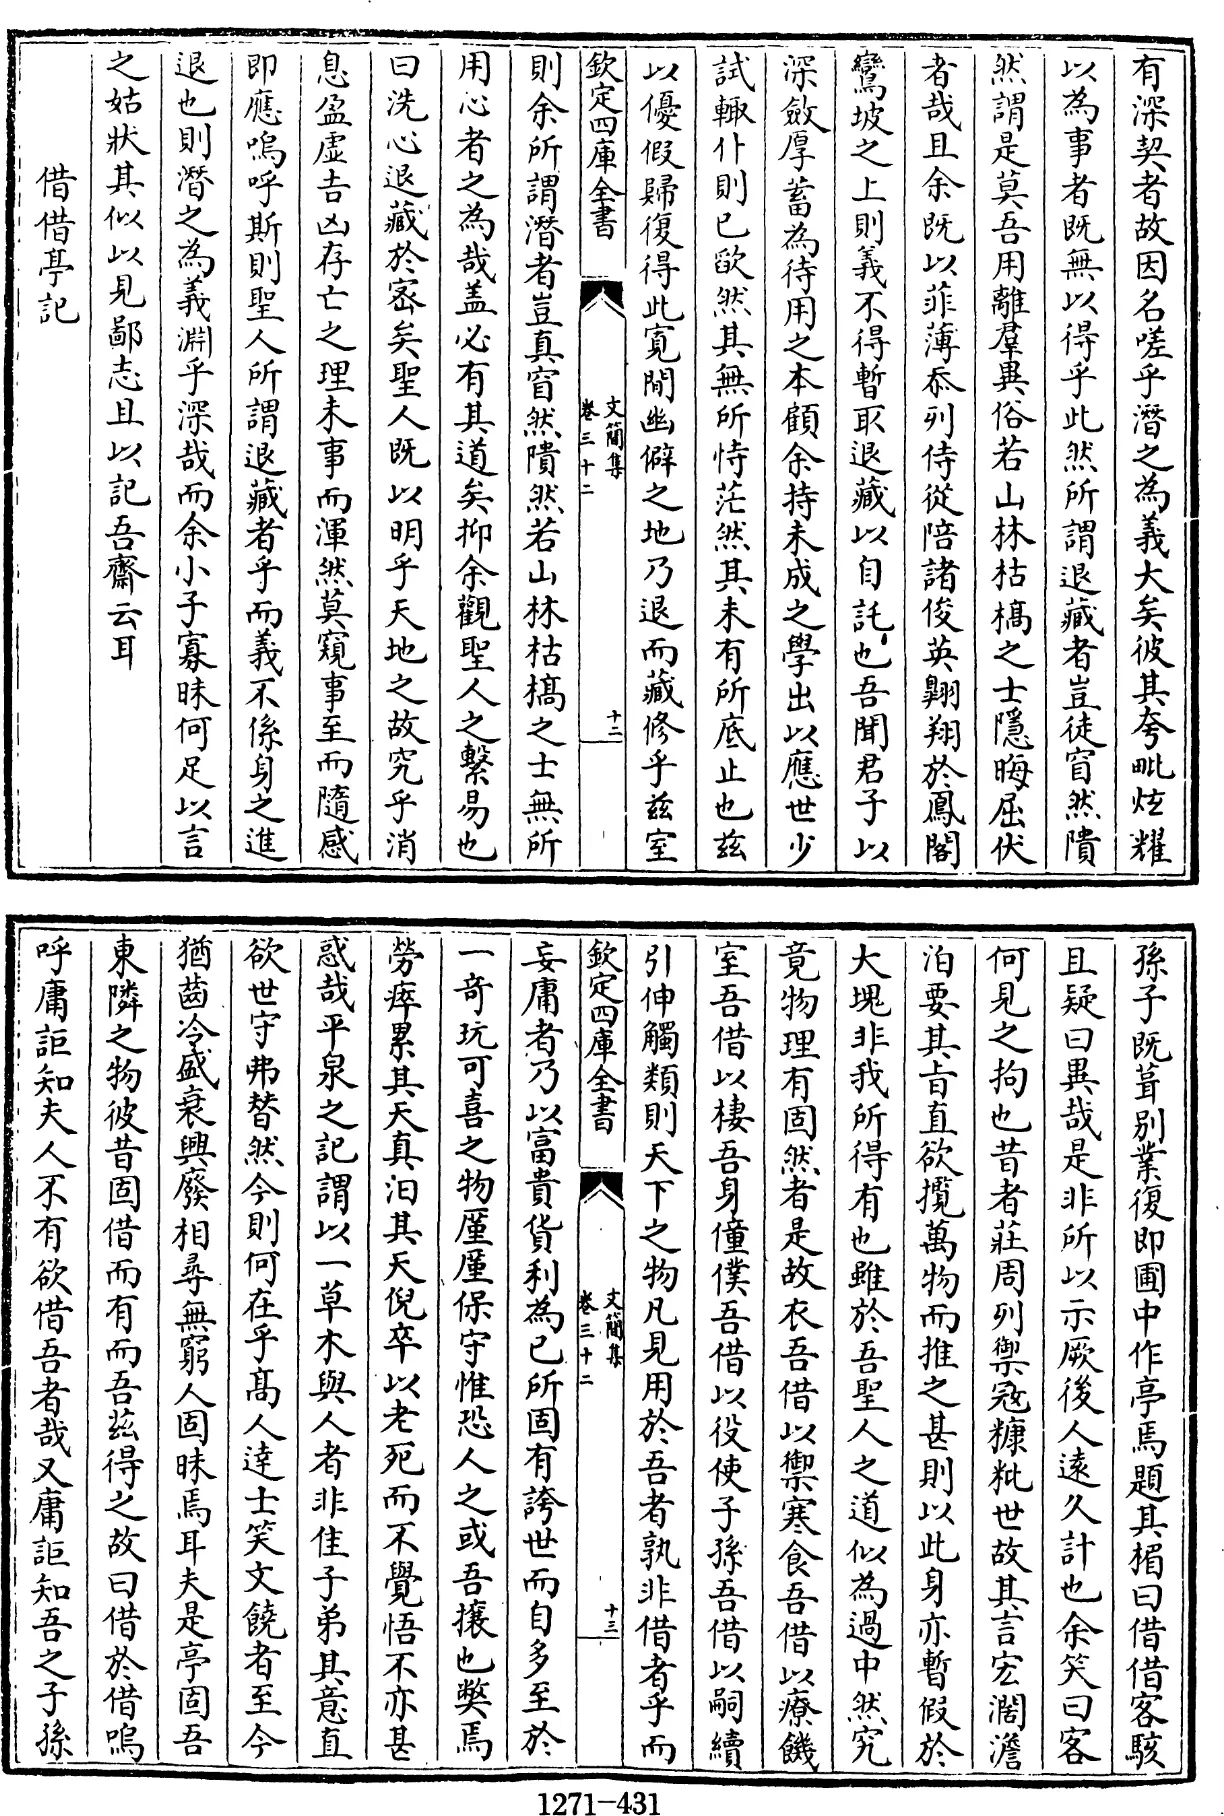 有深契者故因名嗟乎潛之為義大矣彼其夸毗炫耀
以為事者既無以得乎此然所謂退藏者豈徒窅然隤
然謂是莫吾用離羣異俗若山林枯槁之士隱晦屈伏
者哉且余既以菲薄忝列侍從陪諸俊英翺翔於鳳閣
鸞坡之上則義不得暫取退藏以自託也吾聞君子以
深斂厚蓄為待用之本顧余持未成之學出以應世少
試輙仆則已欿然其無所恃茫然其未有所底止也兹
以優假歸復得此寛閒幽僻之地乃退而藏修乎兹室
欽定四庫全書
文簡集
卷三十二
十二
則余所謂潛者豈真窅然隤然若山林枯槁之士無所
用心者之為哉盖必有其道矣抑余觀聖人之繫易也
曰洗心退藏於宻矣聖人既以明乎天地之故究乎消
息盈虛吉凶存亡之理未事而渾然莫窺事至而隨感
即應嗚呼斯則聖人所謂退藏者乎而義不係身之進
退也則潛之為義淵乎深哉而余小子寡昧何足以言
之姑狀其似以見鄙志且以記吾齋云耳
借借亭記
孫子既葺别業復即圃中作亭焉題其楣曰借借客駭
且疑曰異哉是非所以示厥後人遠久計也余笑曰客
何見之拘也昔者莊周列禦寇糠粃世故其言宏濶澹
泊要其旨直欲攬萬物而推之甚則以此身亦暫假於
大塊非我所得有也雖於吾聖人之道似為過中然究
竟物理有固然者是故衣吾借以禦寒食吾借以療饑
室吾借以棲吾身僮僕吾借以役使子孫吾借以嗣續
引伸觸類則天下之物凡見用於吾者孰非借者乎而
欽定四庫全書
文簡集
卷三十二
十三
妄庸者乃以富貴貨利為已所固有誇世而自多至於
一奇玩可喜之物厪厪保守惟恐人之或吾攘也獘焉
勞瘁累其天真汨其天倪卒以老死而不覺悟不亦甚
惑哉平泉之記謂以一草木與人者非佳子弟其意直
欲世守弗替然今則何在乎髙人逹士笑文饒者至今
猶齒冷盛衰興廢相尋無窮人固昧焉耳夫是亭固吾
東隣之物彼昔固借而有而吾兹得之故曰借於借嗚
呼庸詎知夫人不有欲借吾者哉又庸詎知吾之子孫
1271-431